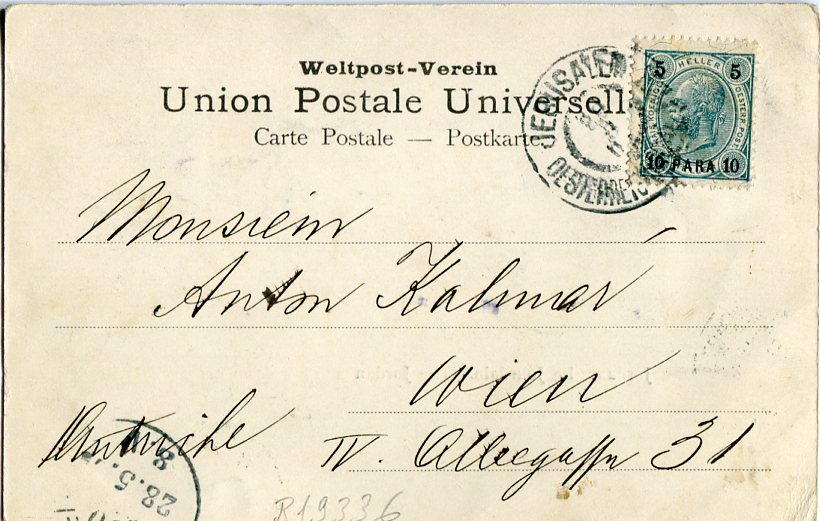 Weltpost-Verein
Union Postale Universelle
Carte Postale — Postkarte.
JERUSALEM
OESTERREICH
5 HELLER 5
10 PARA 10
Monsieur
Anton Kálmár
Wien
Autriche
IV. 31
28.5.
R19336